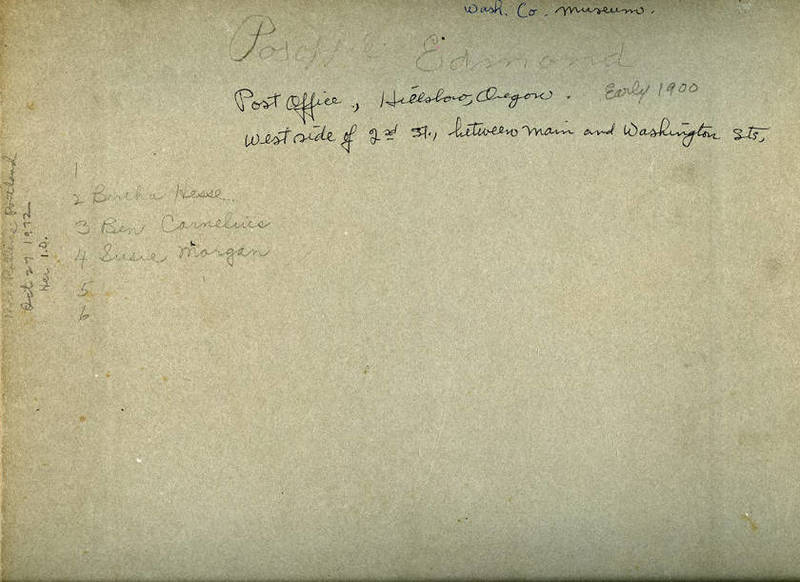 Wash. Co. Museum.
Edmond
Post Office, Hillsboro, Oregon. Early 1900
West side of 2nd St., between Main and Washington Sts,
1
2 Bertha Hesse
3 Ben Cornelius
4 Susie Morgan
5
6
Portland
Oct 27 1972
Her I.D.